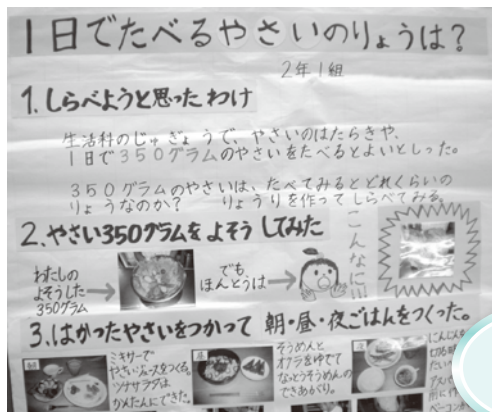 1日でたべるやさいのりょうは?
2年1組
1. しらべようと思ったわけ
生活科のじゅぎょうで、やさいのはたらきや、
1日で350グラムのやさいをたべるとよいとしった。
350グラムのやさいは、たべてみるとどれくらいの
りょうなのか? りょうりを作ってしらべてみる。
2.やさい350グラムをよそうしてみた
わたしの
よそうした
350グラム
でも
ほんとうは
こんなに!!!
3.はかったやさいをつかって 朝・昼・夜ごはんをつくった。
朝
ミキサーで
やさいジュースをつくる。
ツナサラダは
かんたんにできた。
昼
そうめんと
オクラをゆでて
なっとうそうめんの
できあがり。
にんじんを